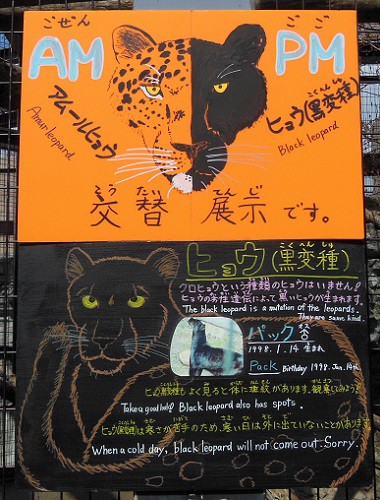 ごぜん
AM
ごご
PM
アムールヒョウ
Amur leopard
こくへんしゅ
ヒョウ(黒変種)
Black leopard
こうたい てんじ
交替 展示です。
こくへんしゅ
ヒョウ(黒変種)
クロヒョウという種類のヒョウはいません!
ヒョウの劣性遺伝によって黒いヒョウが生まれます。
The black leopard is a mutation of the leopards.
They are same kind.
パック
1998.1.14 生まれ
Pack Birthday 1998. Jan. 14th
ヒョウ(黒変種)もよく見ると体に斑紋があります。観察してみよう!
Take a good look! Black leopard also has spots.
ヒョウ(黒変種)は寒さが苦手のため、寒い日は外に出ていないことがあります。
When a cold day, black leopard will not come out. Sorry.